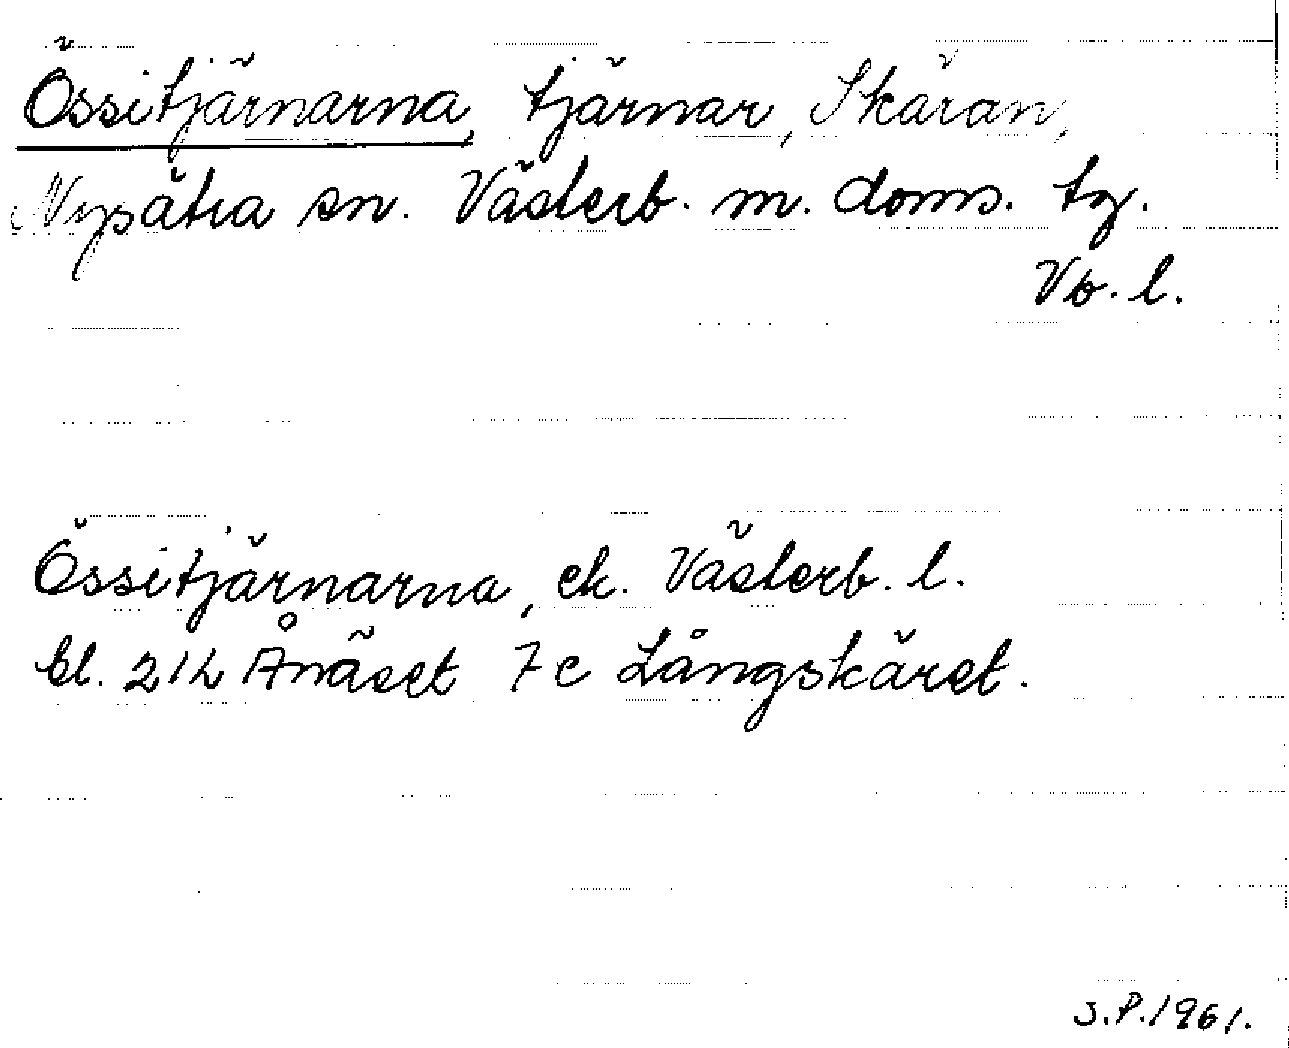 Össitjärnarna, tjärnar, Skäran,
Nysätra sn. Västerb. m. doms. tg.
Vb. l.
Össitjärnarna, ek. Västerb. l.
bl. 21L Ånäset 7c Långskäret.
S.P.1961.